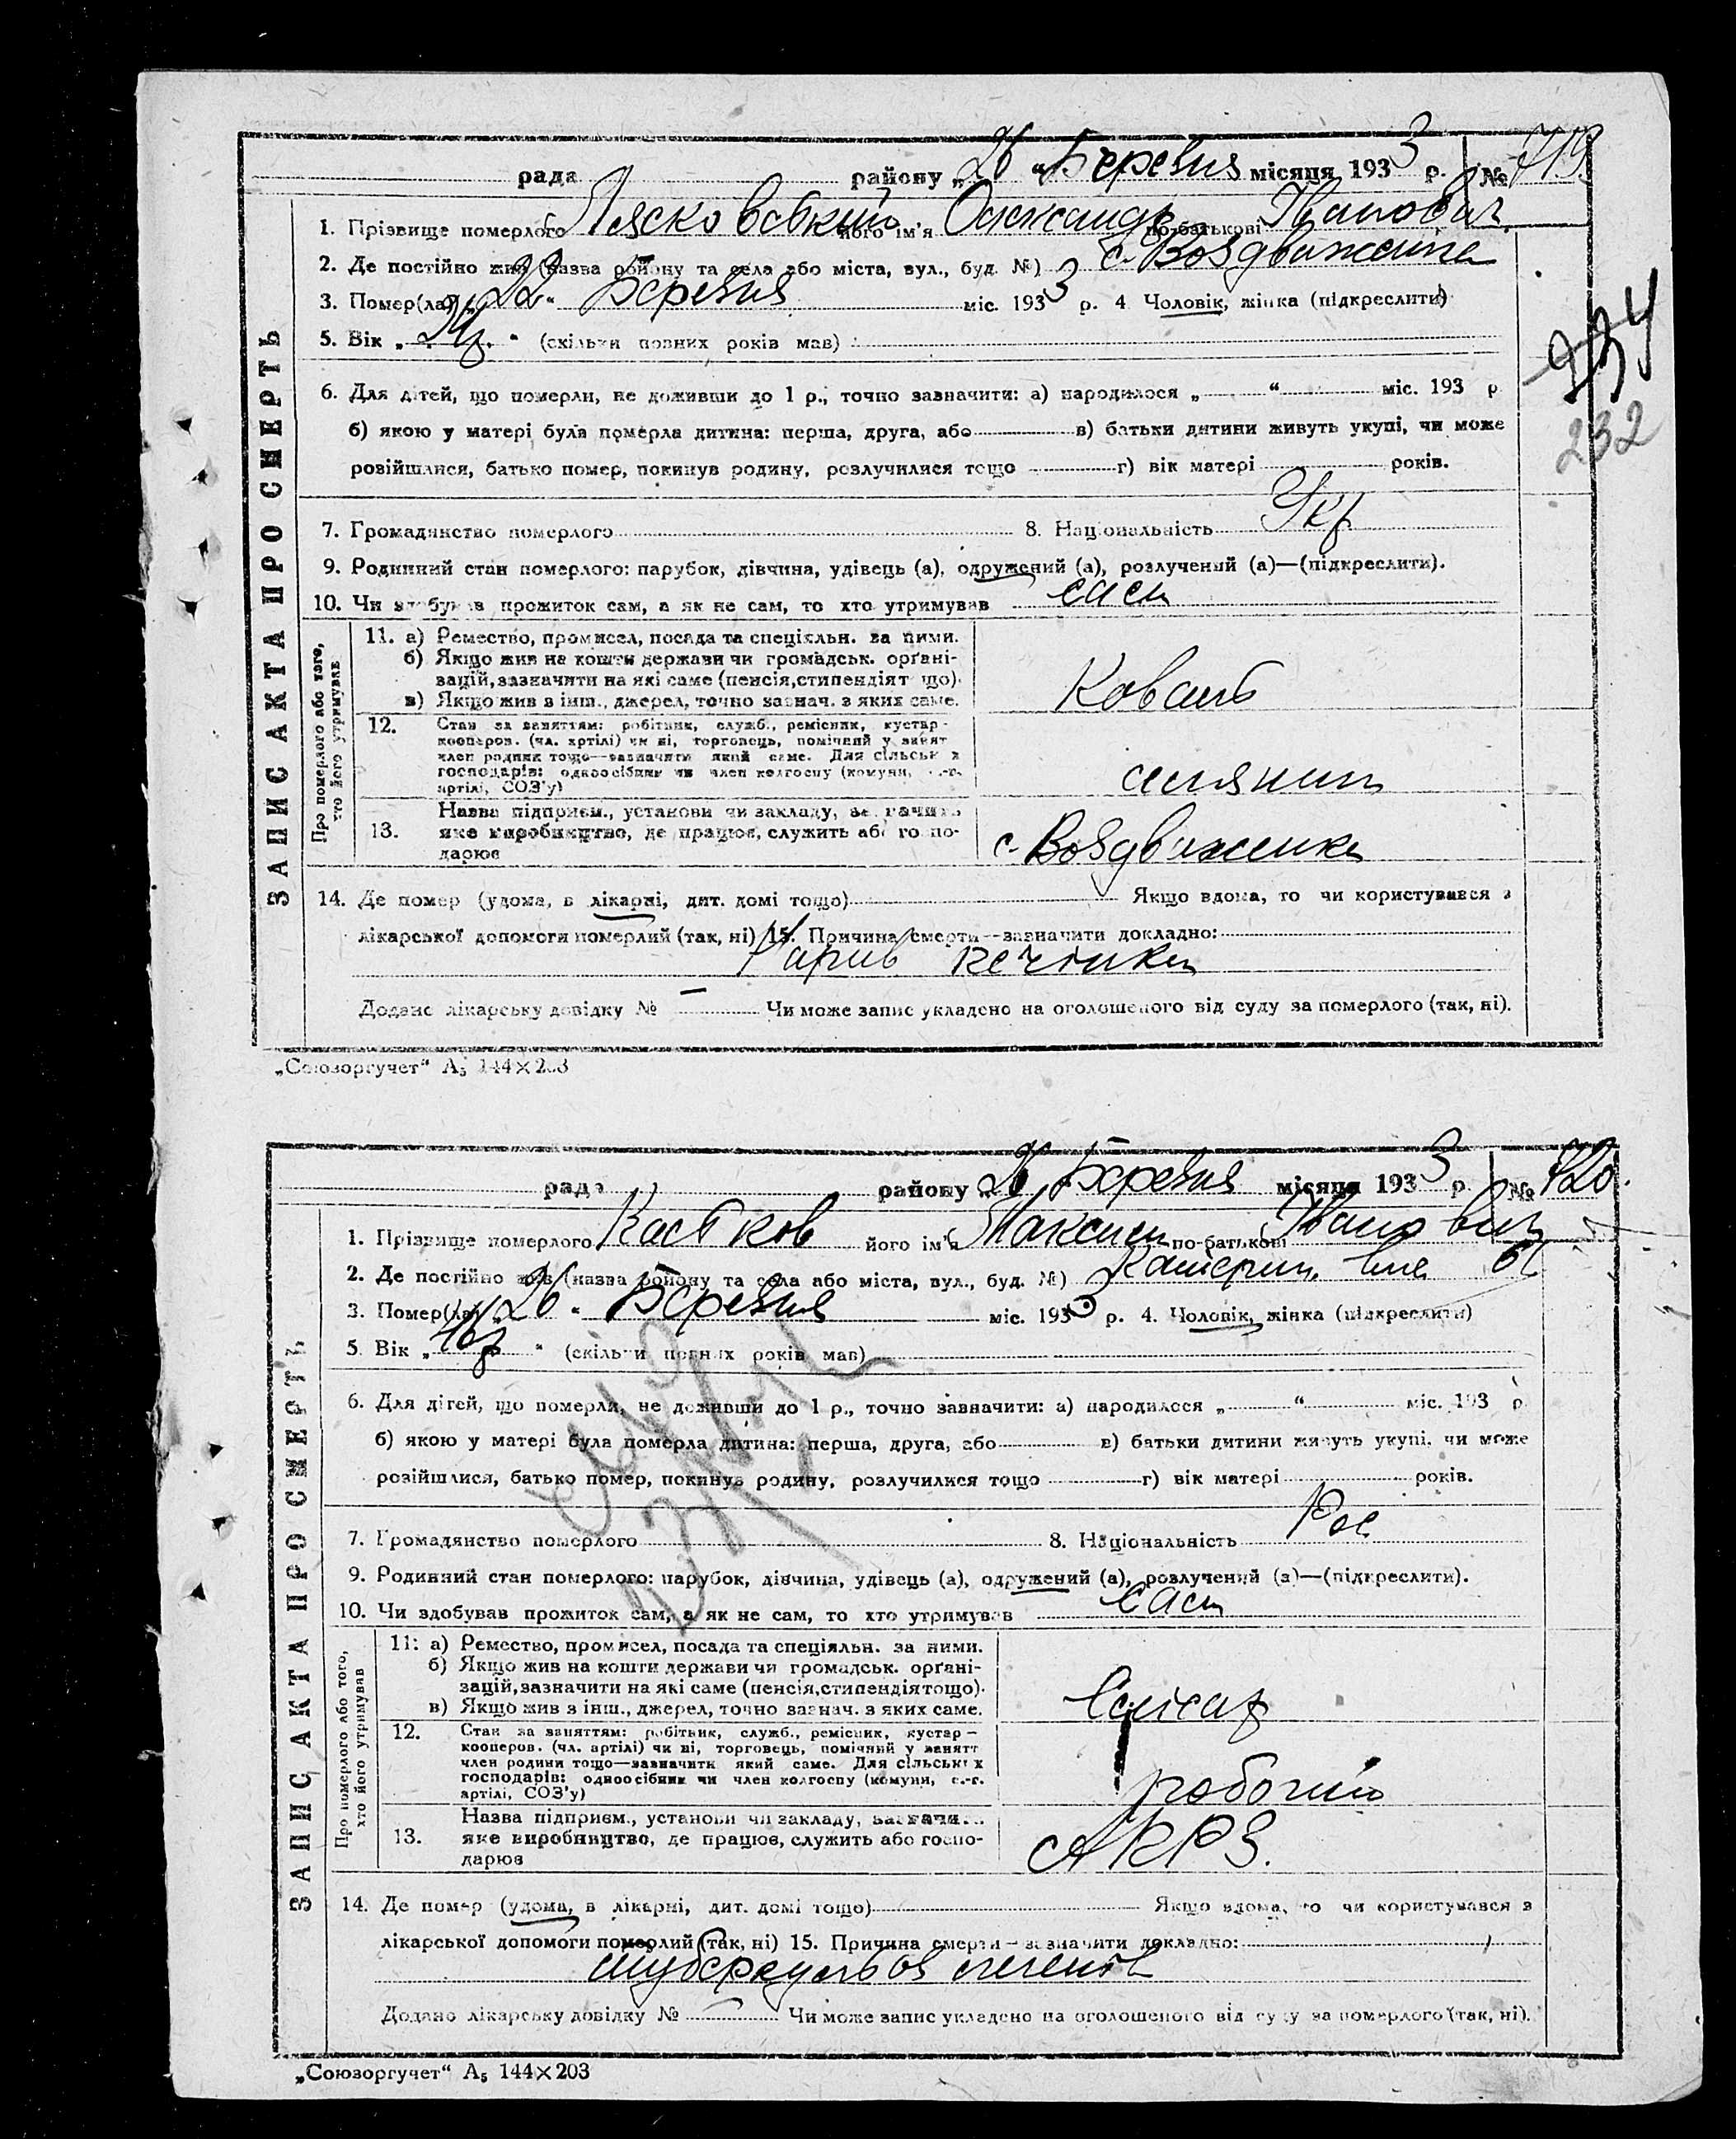 рада району „26 “ Березня місяця 1933 р. № 719.
1. Прізвище померлого Лясковський його ім'я Олександр по-батькові Іванович
2. Де постійно жив (назва району та села або міста, вул., буд. №) с. Воздвиженка
3. Помер(ла) „ 22 “ Березня міс. 1933 р. 4 Чоловік, жінка (підкреслити)
5. Вік „ “ (скільки повних років мав)
234
6. Для дітей, що померли, не доживши до 1 р., точно зазначити: а) народилося „ “ міс. 193 р
б) якою у матері була померла дитина: перша, друга, або в) батьки дитини живуть укупі, чи може
232
розійшлися, батько помер, покинув родину, розлучилися тощо г) вік матері років.
7. Громадянство померлого 8. Національність Укр
9. Родинний стан померлого: парубок, дівчина, удівець (а), одружений (а), розлучений (а)—(підкреслити).
10. Чи здобував прожиток сам, а як не сам, то хто утримував сам
ЗАПИС АКТА ПРО СМЕРТЬ
Про померлого або того,
хто його утримував
11. а) Ремество, промисел, посада та спеціяльн. за ними.
б) Якщо жив на кошти держави чи громадськ. орґані-
зацій, зазначити на які саме (пенсія, стипендія т що).
в) Якщо жив з інш., джерел, точно зазнач. з яких саме.
Коваль
12. Стан за заняттям: робітник, служб., ремісник, кустар -
кооперов. (чл. артілі) чи ні, торговець, помічний у занят
член родини тощо—зазначити який саме. Для сільськ х
господарів: одноосібник чи член колгоспу (комуни, с.-г.
артілі, СОЗ'у)
селянин
13. Назва підприєм., установи чи закладу, зазначити
яке виробництво, де працює, служить або госпо-
дарює
с. Воздвиженка
14. Де помер (удома, в лікарні, дит. домі тощо) Якщо вдома, то чи користувався з
лікарської допомоги померлий (так, ні) 15. Причина смерти—зазначити докладно:
Нарив печінки
Додано лікарську довідку № — Чи може запис укладено на оголошеного від суду за померлого (так, ні).
„Союзоргучет“ А₅ 144×203
рада району „26 Березня місяця 1933 р. № 720.
1. Прізвище померлого його ім'я Максим по-батькові Іванович
2. Де постійно жив (назва району та села або міста, вул., буд. №) Катерин.
3. Помер(ла) „ 26 “ Березня міс. 1933 р. 4. Чоловік, жінка (підкреслити)
5. Вік „ “ (скільки повних років мав)
6. Для дітей, що померли, не доживши до 1 р., точно зазначити: а) народилося „ “ міс. 193 р
б) якою у матері була померла дитина: перша, друга, або в) батьки дитини живуть укупі, чи може
розійшлися, батько помер, покинув родину, розлучилися тощо г) вік матері років.
7. Громадянство померлого 8. Національність Рос
9. Родинний стан померлого: парубок, дівчина, удівець (а), одружений (а), розлучений (а)—(підкреслити).
10. Чи здобував прожиток сам, а як не сам, то хто утримував сам
ЗАПИС АКТА ПРО СМЕРТЬ
Про померлого або того,
хто його утримував
11: а) Ремество, промисел, посада та спеціяльн. за ними.
б) Якщо жив на кошти держави чи громадськ. орґані-
зацій, зазначити на які саме (пенсія, стипендія тощо).
в) Якщо жив з інш., джерел, точно зазнач. з яких саме.
Слюсар
12. Стан за заняттям: робітник, служб., ремісник, кустар —
кооперов. (чл. артілі) чи ні, торговець, помічний у занятт
член родини тощо—зазначити який саме. Для сільськ х
господарів: одноосібник чи член колгоспу (комуни, с.-г.
артілі, СОЗ'у)
робочий
13. Назва підприєм., установи чи закладу, зазначити
яке виробництво, де працює, служить або госпо-
дарює
14. Де помер (удома, в лікарні, дит. домі тощо) Якщо вдома, то чи користувався з
лікарської допомоги померлий (так, ні) 15. Причина смерти—зазначити докладно:
туберкульоз легенів
Додано лікарську довідку № — Чи може запис укладено на оголошеного від суду за померлого (так, ні).
„Союзоргучет“ А₅ 144×203